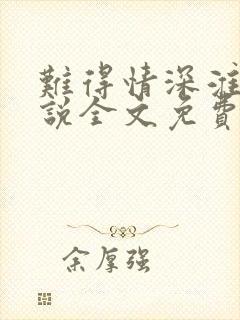 難得情深淮
說全文免費
余厚强